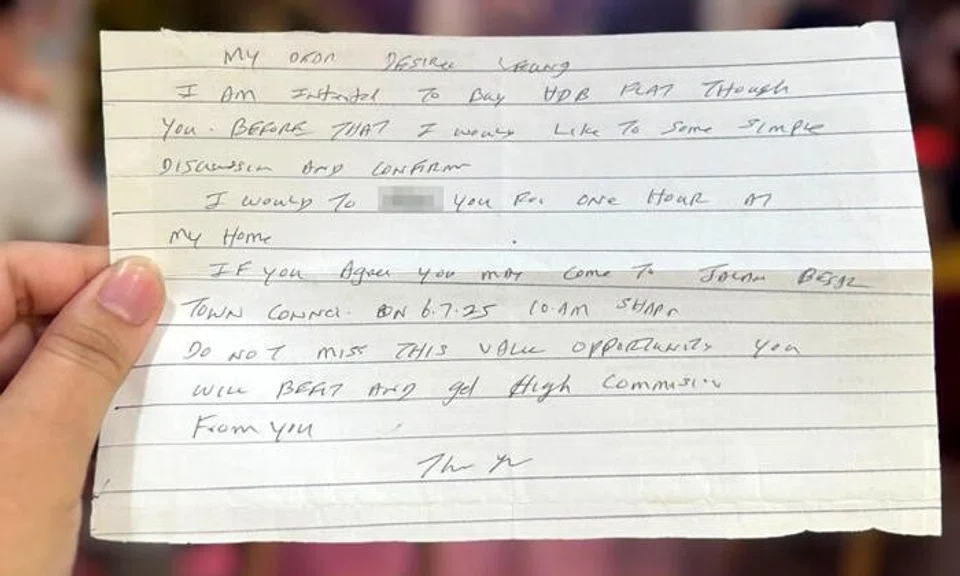 MY DEAR DESIREE
I AM Intersted TO Buy HDB FLAT THOUGH
YOU. BEFORE THAT I would LIKE TO Some SIMPLE
DISCUSSION AND CONFIRM
I would TO you For ONE HOUR AT
MY Home
IF you Agree you may Come TO JALAN BESAR
TOWN CONNCL. ON 6.7.25 10.AM SHARP
DO NOT MISS THIS VALUE OPPORTUNITY YOU
WILL AND get High Commision
From YOU